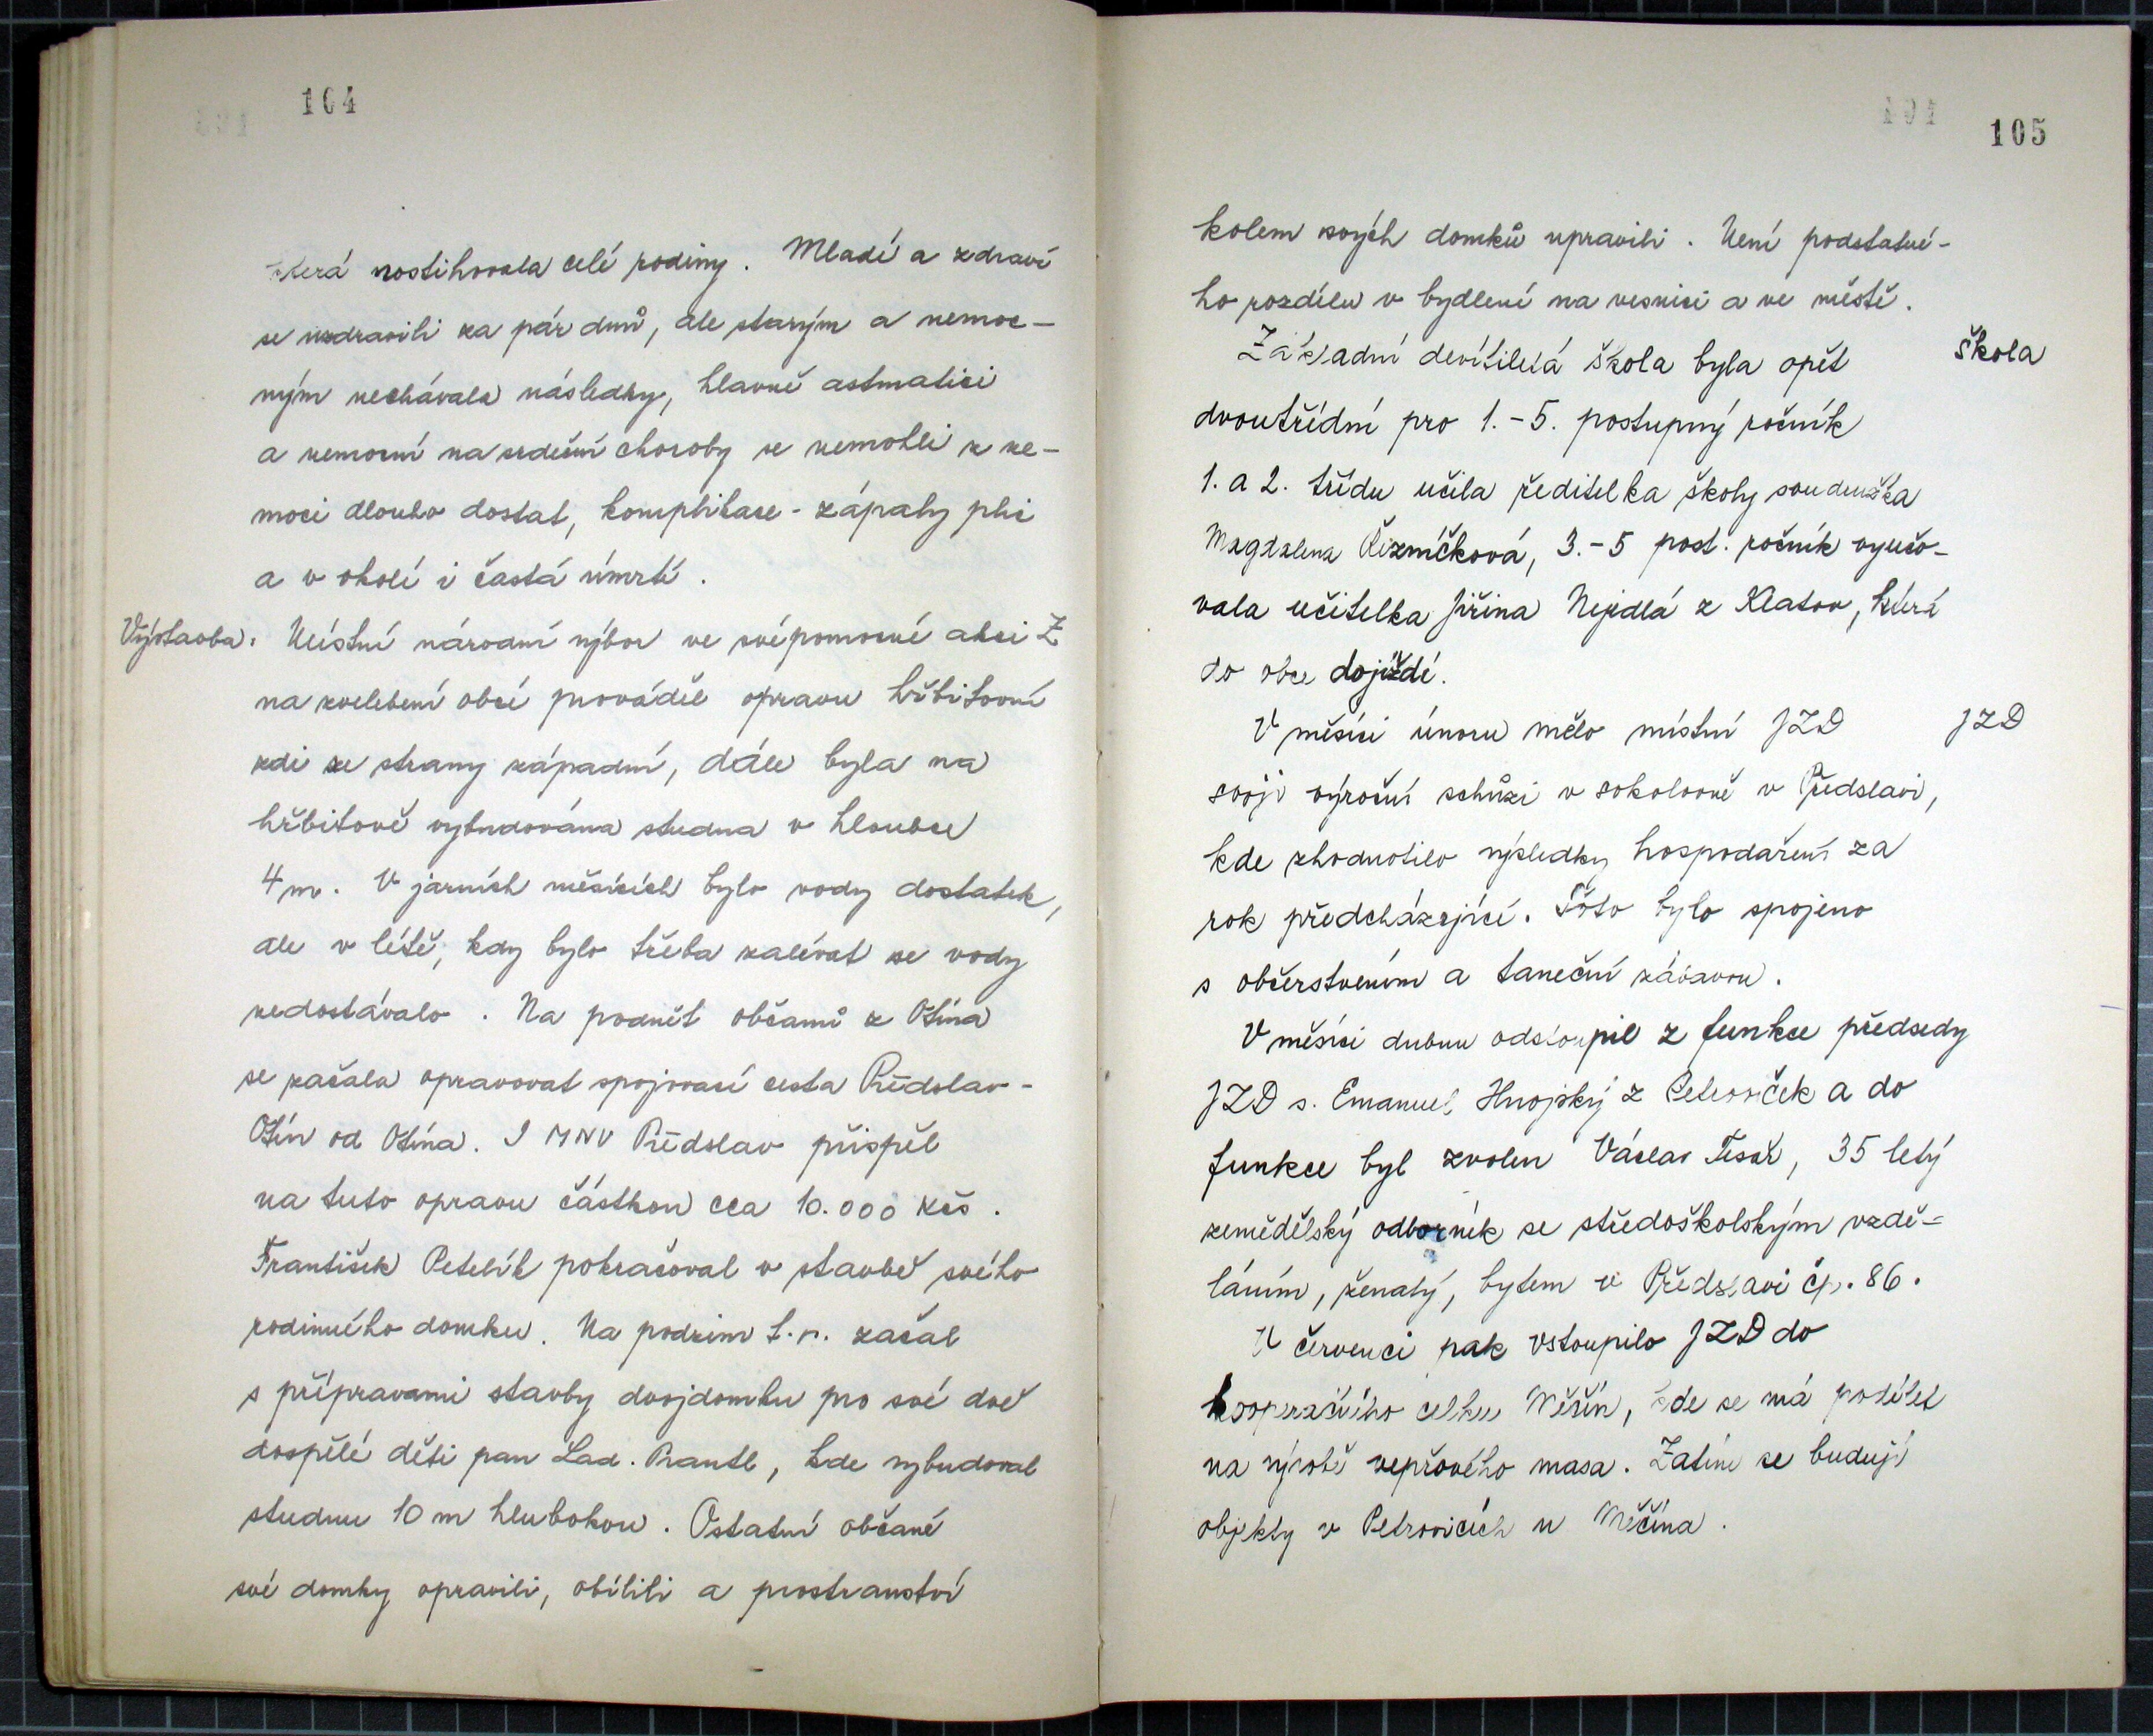 104
která postihovala celé rodiny. Mladí a zdraví
se uzdravili za pár dnů, ale starým a nemoc-
ným nechávala následky, hlavně astmatici
a nemocní na srdeční choroby se nemohli z ne-
moci dlouho dostat, komplikace - zápaly plic
a v okolí i častá úmrtí.
Výstavba: Místní národní výbor ve svépomocné akci Z
na zvelebení obcí prováděl opravu hřbitovní
zdi ze strany západní, dále byla na
hřbitově vybudována studna v hloubce
4 m. V jarních měsících bylo vody dostatek,
ale v létě, kdy bylo třeba zalévat se vody
nedostávalo. Na podnět občanů z Otína
se začala opravovat spojovací cesta Předslav-
Otín od Otína. I MNV Předslav přispěl
na tuto opravu částkou cca 10.000 Kčs.
František Petelík pokračoval v stavbě svého
rodinného domku. Na podzim t.r. začal
s přípravami stavby dvojdomku pro své dvě
dospělé děti pan Lad. Prantl, kde vybudoval
studnu 10 m hlubokou. Ostatní občané
své domky opravili, obílili a prostranství
105
kolem svých domků upravili. Není podstatné-
ho rozdílu v bydlení na vesnici a ve městě.
Základní devítiletá škola byla opět škola
dvoutřídní pro 1.-5. postupný ročník
1. a 2. třídu učila ředitelka školy soudružka
Magdalena Řezníčková, 3.-5 post. ročník vyučo-
vala učitelka Jiřina Nejedlá z Klatov, která
do obce dojíždí.
V měsíci únoru mělo místní JZD JZD
svoji výroční schůzi v sokolovně v Předslavi,
kde zhodnotilo výsledky hospodaření za
rok předcházející. Toto bylo spojeno
s občerstvením a taneční zábavou.
V měsíci dubnu odstoupil z funkce předsedy
JZD s. Emanuel Hnojský z Petroviček a do
funkce byl zvolen Václav Tesař, 35 letý
zemědělský odborník se středoškolským vzdě-
láním, ženatý, bytem v Předslavi čp. 86.
V červenci pak vstoupilo JZD do
kooperačního celku Měčín, kde se má podílet
na výrobě vepřového masa. Zatím se budují
objekty v Petrovicích u Měčína.